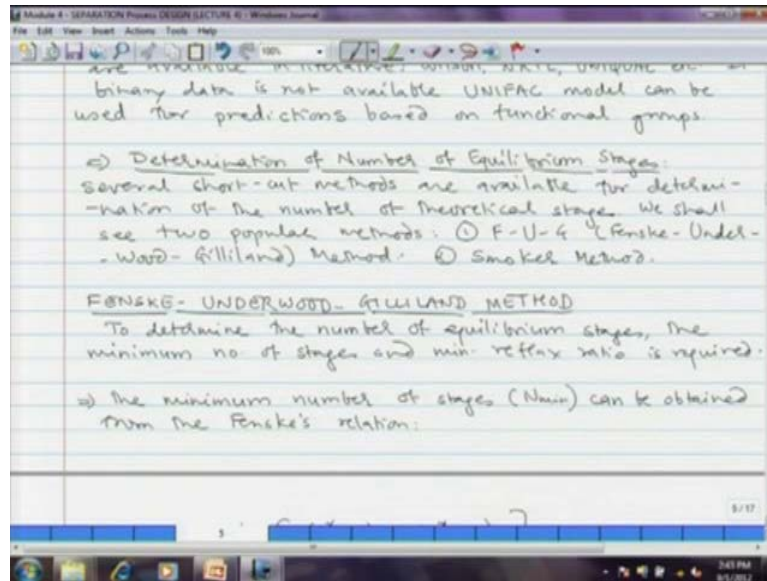 Module 4 - SEPARATION Process DESIGN (LECTURE 4) - Windows Journal
File Edit View Insert Actions Tools Help
100%
are available in literature: Wilson, NRTL, UNIQUAC etc.
binary data is not available UNIFAC model can be
used for predictions based on functional groups.
=> Determination of Number of Equilibrium Stages:
several short-cut methods are available for determi-
-nation of the number of theoretical stages. We shall
see two popular methods: ① F-U-G (Fenske-Under-
-wood-Gilliland) Method. ② Smoker Method.
FENSKE-UNDERWOOD-GILLILAND METHOD
To determine the number of equilibrium stages, the
minimum no. of stages and min. reflux ratio is required.
=> The minimum number of stages (Nmin) can be obtained
from the Fenske's relation:
5/17
5
2:43 PM
8/5/2012